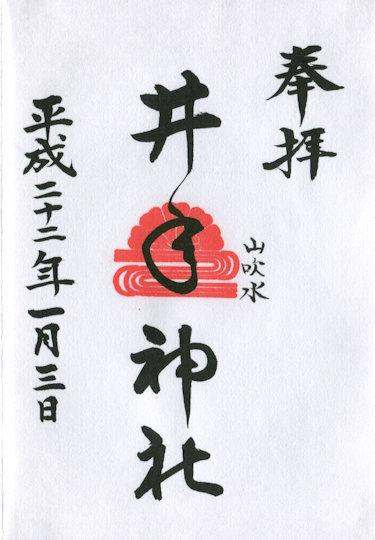 奉拝
山吹水
井手神社
平成二十二年一月三日